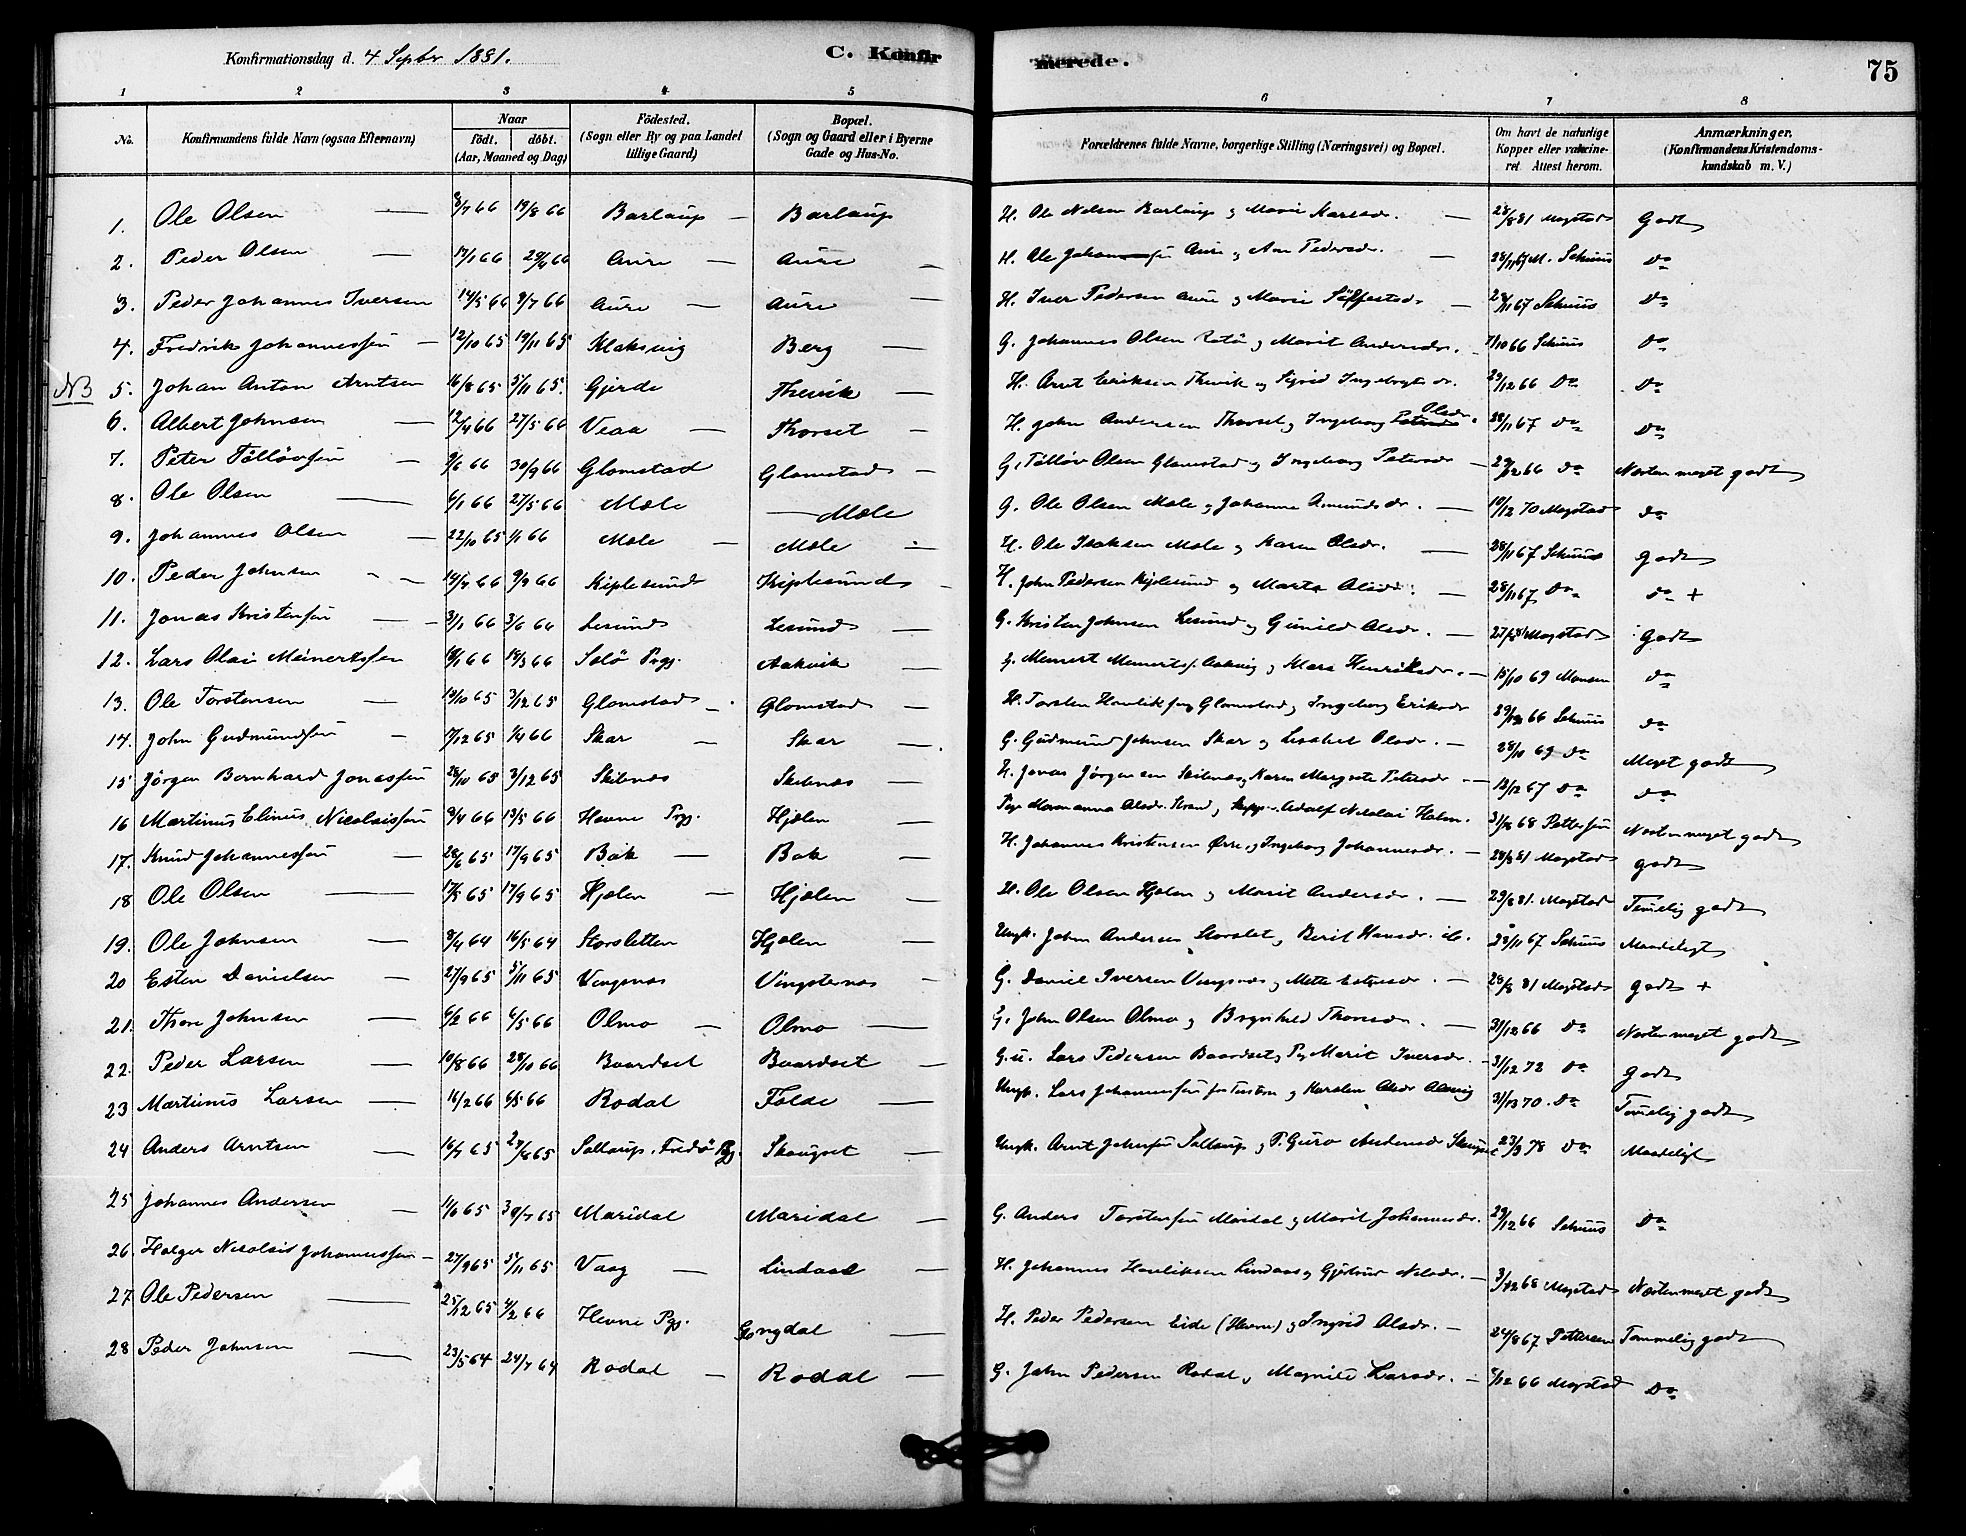 Konfirmationsdag d. 4 Septbr 1881.
C. Konfirmerede.
75
1 2 3 4 5 6 7 8
No.
Konfirmandens fulde Navn (ogsaa Efternavn)
Naar
födt. döbt.
(Aar, Maaned og Dag)
Födested.
(Sogn eller By og paa Landet tillige Gaard)
Bopæl.
(Sogn og Gaard eller i Byerne Gade og Hus-No.
Forældrenes fulde Navne, borgerlige Stilling (Næringsvei) og Bopæl.
Om havt de naturlige Kopper eller vakcineret Attest herom.
Anmærkninger.
(Konfirmandens Kristendomskundskab m. V.)
1. Ole Olsen 8/7 66 19/8 66 Barlaup Barlaup H. Ole Nelsen Barlaup og Marie Larsdr. 28/8 81 Mogstad Godt
2. Peder Olsen 17/1 66 29/4 66 Aure Aure H. Ole Johansen Aure og Ane Pedersdr. M. Schuus Do
3. Peder Johannes Iversen 14/5 66 8/7 66 Aure Aure H. Iver Pedersen Aure og Marie 28/11 67 Schuus Do
4. Fredrik Johannessen 12/10 65 19/11 65 Klaksvig Berg G. Johannes Olsen og Marit Andersdr. 7/10 66 Schuus Do
NB 5. Johan Anton Arntsen 16/8 65 5/11 65. Gjerde Thevik H. Arnt Eriksen Thevik og Sigrid Ingebrigtsdr. 29/12 66 Do Do
6. Albert Johnsen 12/4 66 27/5 66 Veaa Thorset H. John Andersen Thorset og Ingeborg Olsdr. 28/11 67 Do Do
7. Peter Tölløvsen 9/6 66 30/9 66 Glomstad Glomstad G. Tölløv Olsen Glomstad og Ingeborg Petersdr 29/12 66 Do Næsten meget godt
8. Ole Olsen 6/1 66 27/5 66 Mæle Mæle G. Ole Olsen Mæle og Johanna Amundsdr. 10/12 70 Mogstad Do
9. Johannes Olsen 22/10 65 1/1 66 Mæle Mæle H. Ole Isaksen Mæle og Karen Olsdr. 28/11 67 Schuus Godt
10. Peder Johnsen 14/7 66 9/9 66 Kiplesund Kiplesund H. John Pedersen og Marta Olsdr. 28/11 67 Do Do +
11. Jonas Kristensen 3/1 66 3/6 66 Lesund Lesund G. Kristen Johnsen Lesund og Gunild Olsdr. Mogstad Godt
12. Lars Olai Meinertsen 18/1 66 18/3 66 Solö Prgj. Aakvik G. Meinert Meinerts. og Klara Henriksdr. 15/10 69 Monsen Do
13. Ole Torstensen 19/10 65 3/12 65 Glomstad Glomstad H. Torsten Henriksen Glomstad og Ingeborg Eriksdr 29/12 66 Schuus Do
14. John Gudmundsen 17/12 65 1/4 66 Skar Skar G. Gudmund Johnsen Skar og Lisabet Olsdr. 28/10 69 Do Meget godt
15 Jørgen Bernhard Jonassen 28/10 65 3/12 65 Skilnæs Skilnæs H. Jonas Jørgensen Skilnæs og Karen Margrete Petersdr. 12/12 67 Do Do
16 Martinus Elinus Nicolaissen 9/4 66 13/5 66 Hevne Prgj. Hjølen Pige Marianna Olsdr. Strand og Adolf Nicolai Holm. 31/8 68 Pettersen Næsten meget godt
17. Knud Johannessen 28/6 65 17/9 65 Bak Bak H. Johannes Kristensen og Ingeborg Johannesdr. 28/8 81 Mogstad godt
18 Ole Olsen 17/5 65 17/9 65 Hjølen Hjølen H. Ole Olsen Hjølen og Marit Andersdr. 29/8 81. Mogstad Temmelig godt
19. Ole Johnsen 8/4 64 16/5 64 Storsletten Hjølen Ungk. John Andersen Storslet og Berit Hansdr. ib. 28/11 67 Schuus Maadeligt
20 Esten Danielsen 27/9 65 5/11 65 Vingsnæs Vingsternæs G. Daniel Iversen Vingsnæs og Mette Estensdr. 28/8 81 Mogstad godt +
21. Thore Johnsen 6/2 66 6/5 66 Olmo Olmo G. John Olsen Olmo og Brynhild Thoresdr. 31/12 66 Do Næsten meget godt
22. Peder Larsen 10/8 66 28/10 66 Baardset Baardset G.u. Lars Pedersen Baardset og P. Marit Iversdr. 31/12 72 Do Godt
23 Martinus Larsen 16/2 66 6/5 66 Rodal Folde Ungk. Lars Johannessen fra Tustern og Olsdr 31/12 70. Do Temmelig godt
24 Anders Arntsen 16/7 65 27/8 65 Sollaup, Fredö Pgj. Skougset Ungk. Arnt Johnsen Sollaup og P. Guro Andersdr 23/9 78 Do Maadeligt
25 Johannes Andersen 11/6 65 30/7 65 Maridal Maridal G. Anders Torstensen Maridal og Marit Johannesdr. 29/12 66 Schuus Do
26. Holger Nicolai Johannessen 27/9 65 5/11 65 Vaag Lindaas H. Johannes Henriksen Lindaas og Gjertrud Nelsdr. 3/12 68 Mogstad Næsten meget godt
27 Ole Pedersen 25/12 65 4/2 66 Hevne Pgj. Gongdal H. Peder Pedersen Eide (Hevne) og Ingrid Olsdr. 24/8 67 Pettersen Temmelig godt
28 Peder Johnsen 23/5 64 24/7 64 Rodal Rodal G. John Pedersen Rodal og Magnild Larsdr. 9/12 66 Mogstad Do